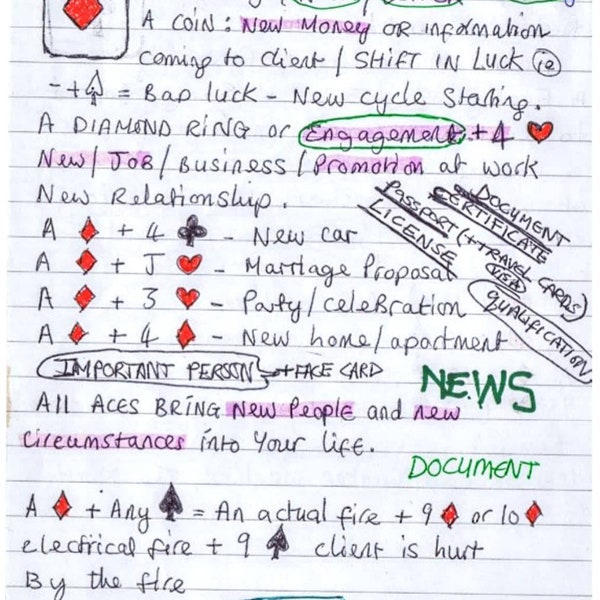 A COIN: New Money OR information
coming to client / SHIFT IN LUCK ie
-+♠ = Bad luck - New cycle Starting.
A DIAMOND RING or Engagement +4 ♥
New / JOB / Business / Promotion at work
New Relationship.
DOCUMENT
CERTIFICATE
PASSPORT (+TRAVEL CARDS)
LICENSE
VISA
QUALIFICATION
A ♦ + 4 ♣ - New car
A ♦ + J ♥ - Marriage Proposal
A ♦ + 3 ♥ - Party/celebration
A ♦ + 4 ♦ - New home/apartment
IMPORTANT PERSON → +FACE CARD
NEWS
All ACES BRING New People and new
circumstances into your life.
DOCUMENT
A ♦ + Any ♠ = An actual fire + 9 ♦ or 10 ♦
electrical fire + 9 ♠ client is hurt
By the fire